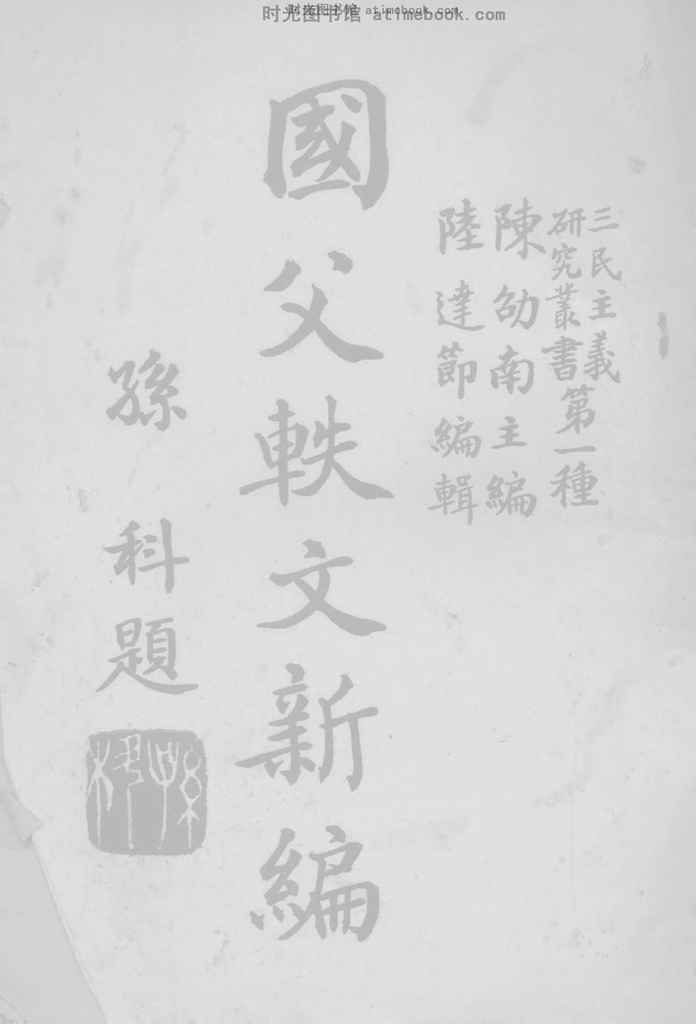 时光图书馆 atimebook.com
时光图书馆 atimebook.com
三民主義
研究叢書第一種
陳劭南主編
陸達節編輯
國父軼文新編
孫科題